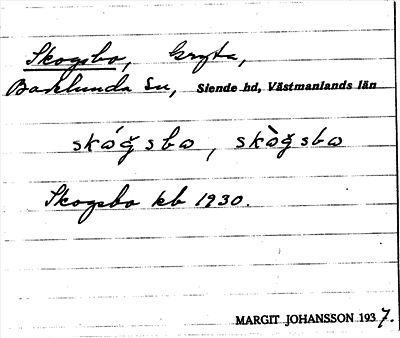 Skogsbo, Gryta,
Badelunda Sn, Siende hd, Västmanlands län
skóğsbo, skòğsbo
Skogsbo kb 1930.
MARGIT JOHANSSON 1937.